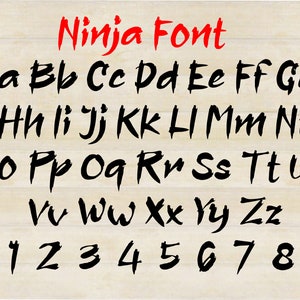 Ninja Font
a Bb Cc Dd Ee Ff G
Hh Ii Jj Kk Ll Mm N
o Pp Oq Rr Ss Tt U
Vv Ww Xx Yy Zz
1 2 3 4 5 6 7 8